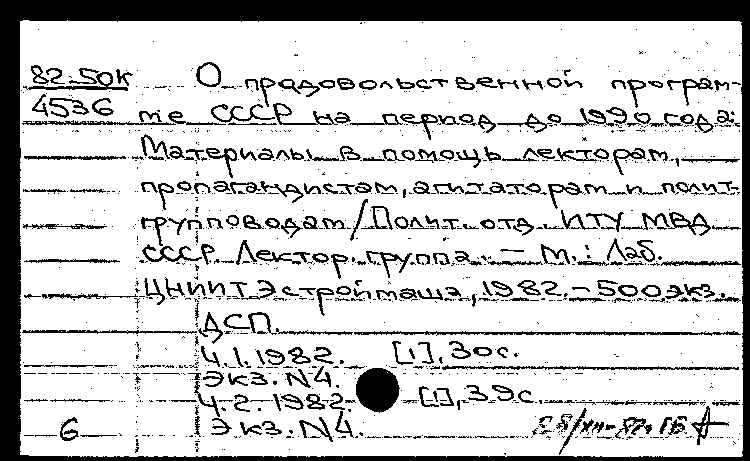 82-50К
4536
О продовольственной програм-
ме СССР на период до 1990 года:
Материалы в помощь лекторам,
пропагандистам, агитаторам и полит-
групповодам / Полит. отд. ИТУ МВД
СССР. Лектор. группа. — М.: Лаб.
ЦНИИТЭстроймаша, 1982. - 500 экз.
ДСП.
Ч.1. 1982. [1], 30 с.
Экз. N4.
Ч.2. 1982. [1], 39 с.
Экз. N4.
6